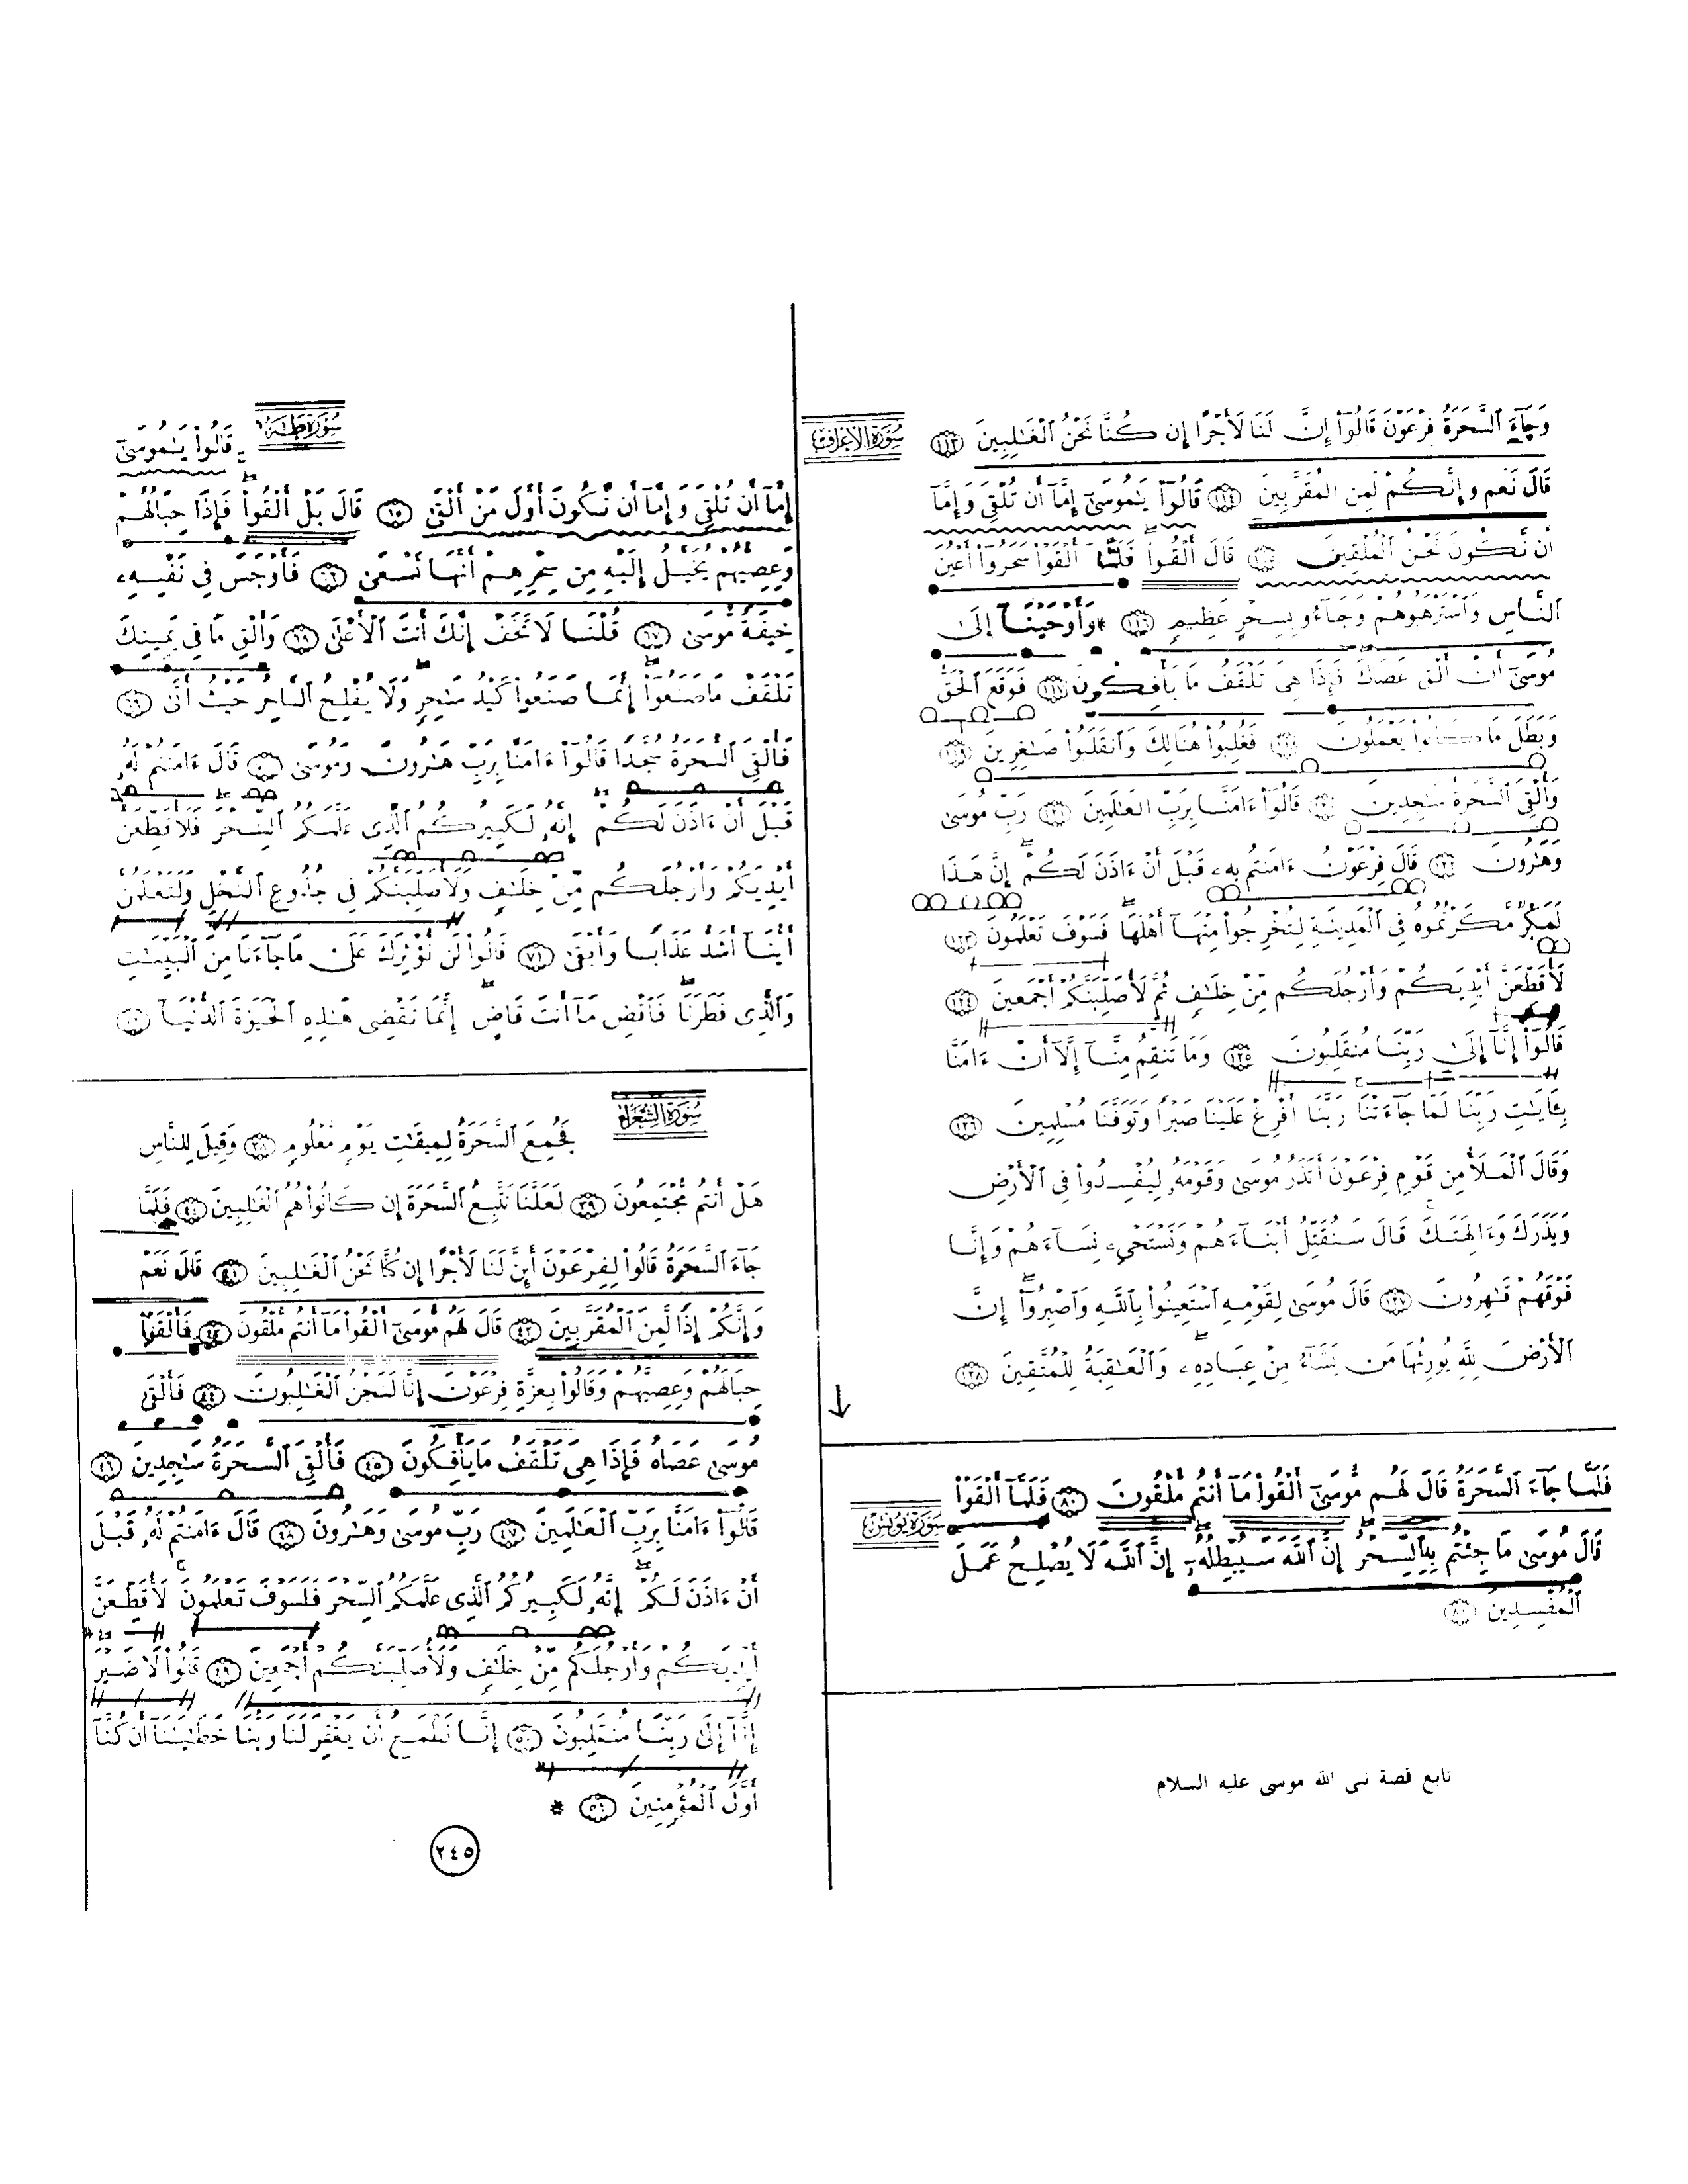 سُورَةُ الأَعْرَافِ
وَجَآءَ ٱلسَّحَرَةُ فِرْعَوْنَ قَالُوٓا۟ إِنَّ لَنَا لَأَجْرًا إِن كُنَّا نَحْنُ ٱلْغَـٰلِبِينَ ١١٣
قَالَ نَعَمْ وَإِنَّكُمْ لَمِنَ ٱلْمُقَرَّبِينَ ١١٤ قَالُوا۟ يَـٰمُوسَىٰٓ إِمَّآ أَن تُلْقِىَ وَإِمَّآ
أَن نَّكُونَ نَحْنُ ٱلْمُلْقِينَ ١١٥ قَالَ أَلْقُوا۟ فَلَمَّآ أَلْقَوْا۟ سَحَرُوٓا۟ أَعْيُنَ
ٱلنَّاسِ وَٱسْتَرْهَبُوهُمْ وَجَآءُو بِسِحْرٍ عَظِيمٍ ١١٦ *وَأَوْحَيْنَآ إِلَىٰ
مُوسَىٰٓ أَنْ أَلْقِ عَصَاكَ فَإِذَا هِىَ تَلْقَفُ مَا يَأْفِكُونَ ١١٧ فَوَقَعَ ٱلْحَقُّ
وَبَطَلَ مَا كَانُوا۟ يَعْمَلُونَ ١١٨ فَغُلِبُوا۟ هُنَالِكَ وَٱنقَلَبُوا۟ صَـٰغِرِينَ ١١٩
وَأُلْقِىَ ٱلسَّحَرَةُ سَـٰجِدِينَ ١٢٠ قَالُوٓا۟ ءَامَنَّا بِرَبِّ ٱلْعَـٰلَمِينَ ١٢١ رَبِّ مُوسَىٰ
وَهَـٰرُونَ ١٢٢ قَالَ فِرْعَوْنُ ءَامَنتُم بِهِۦ قَبْلَ أَنْ ءَاذَنَ لَكُمْ إِنَّ هَـٰذَا
لَمَكْرٌ مَّكَرْتُمُوهُ فِى ٱلْمَدِينَةِ لِتُخْرِجُوا۟ مِنْهَآ أَهْلَهَا فَسَوْفَ تَعْلَمُونَ ١٢٣
لَأُقَطِّعَنَّ أَيْدِيَكُمْ وَأَرْجُلَكُم مِّنْ خِلَـٰفٍ ثُمَّ لَأُصَلِّبَنَّكُمْ أَجْمَعِينَ ١٢٤
قَالُوٓا۟ إِنَّآ إِلَىٰ رَبِّنَا مُنقَلِبُونَ ١٢٥ وَمَا تَنقِمُ مِنَّآ إِلَّآ أَنْ ءَامَنَّا
بِـَٔايَـٰتِ رَبِّنَا لَمَّا جَآءَتْنَا رَبَّنَآ أَفْرِغْ عَلَيْنَا صَبْرًا وَتَوَفَّنَا مُسْلِمِينَ ١٢٦
وَقَالَ ٱلْمَلَأُ مِن قَوْمِ فِرْعَوْنَ أَتَذَرُ مُوسَىٰ وَقَوْمَهُۥ لِيُفْسِدُوا۟ فِى ٱلْأَرْضِ
وَيَذَرَكَ وَءَالِهَتَكَ قَالَ سَنُقَتِّلُ أَبْنَآءَهُمْ وَنَسْتَحْىِۦ نِسَآءَهُمْ وَإِنَّا
فَوْقَهُمْ قَـٰهِرُونَ ١٢٧ قَالَ مُوسَىٰ لِقَوْمِهِ ٱسْتَعِينُوا۟ بِٱللَّهِ وَٱصْبِرُوٓا۟ إِنَّ
ٱلْأَرْضَ لِلَّهِ يُورِثُهَا مَن يَشَآءُ مِنْ عِبَادِهِۦ وَٱلْعَـٰقِبَةُ لِلْمُتَّقِينَ ١٢٨
سُورَةُ يُونُسَ
فَلَمَّا جَآءَ ٱلسَّحَرَةُ قَالَ لَهُم مُّوسَىٰٓ أَلْقُوا۟ مَآ أَنتُم مُّلْقُونَ ٨٠ فَلَمَّآ أَلْقَوْا۟
قَالَ مُوسَىٰ مَا جِئْتُم بِهِ ٱلسِّحْرُ إِنَّ ٱللَّهَ سَيُبْطِلُهُۥٓ إِنَّ ٱللَّهَ لَا يُصْلِحُ عَمَلَ
ٱلْمُفْسِدِينَ ٨١
تابع قصة نبى الله موسى عليه السلام
سُورَةُ طه
قَالُوا۟ يَـٰمُوسَىٰٓ
إِمَّآ أَن تُلْقِىَ وَإِمَّآ أَن نَّكُونَ أَوَّلَ مَنْ أَلْقَىٰ ٦٥ قَالَ بَلْ أَلْقُوا۟ فَإِذَا حِبَالُهُمْ
وَعِصِيُّهُمْ يُخَيَّلُ إِلَيْهِ مِن سِحْرِهِمْ أَنَّهَا تَسْعَىٰ ٦٦ فَأَوْجَسَ فِى نَفْسِهِۦ
خِيفَةً مُّوسَىٰ ٦٧ قُلْنَا لَا تَخَفْ إِنَّكَ أَنتَ ٱلْأَعْلَىٰ ٦٨ وَأَلْقِ مَا فِى يَمِينِكَ
تَلْقَفْ مَا صَنَعُوٓا۟ إِنَّمَا صَنَعُوا۟ كَيْدُ سَـٰحِرٍ وَلَا يُفْلِحُ ٱلسَّاحِرُ حَيْثُ أَتَىٰ ٦٩
فَأُلْقِىَ ٱلسَّحَرَةُ سُجَّدًا قَالُوٓا۟ ءَامَنَّا بِرَبِّ هَـٰرُونَ وَمُوسَىٰ ٧٠ قَالَ ءَامَنتُمْ لَهُۥ
قَبْلَ أَنْ ءَاذَنَ لَكُمْ إِنَّهُۥ لَكَبِيرُكُمُ ٱلَّذِى عَلَّمَكُمُ ٱلسِّحْرَ فَلَأُقَطِّعَنَّ
أَيْدِيَكُمْ وَأَرْجُلَكُم مِّنْ خِلَـٰفٍ وَلَأُصَلِّبَنَّكُمْ فِى جُذُوعِ ٱلنَّخْلِ وَلَتَعْلَمُنَّ
أَيُّنَآ أَشَدُّ عَذَابًا وَأَبْقَىٰ ٧١ قَالُوا۟ لَن نُّؤْثِرَكَ عَلَىٰ مَا جَآءَنَا مِنَ ٱلْبَيِّنَـٰتِ
وَٱلَّذِى فَطَرَنَا فَٱقْضِ مَآ أَنتَ قَاضٍ إِنَّمَا تَقْضِى هَـٰذِهِ ٱلْحَيَوٰةَ ٱلدُّنْيَآ ٧٢
سُورَةُ الشُّعَرَاءِ
فَجُمِعَ ٱلسَّحَرَةُ لِمِيقَـٰتِ يَوْمٍ مَّعْلُومٍ ٣٨ وَقِيلَ لِلنَّاسِ
هَلْ أَنتُم مُّجْتَمِعُونَ ٣٩ لَعَلَّنَا نَتَّبِعُ ٱلسَّحَرَةَ إِن كَانُوا۟ هُمُ ٱلْغَـٰلِبِينَ ٤٠ فَلَمَّا
جَآءَ ٱلسَّحَرَةُ قَالُوا۟ لِفِرْعَوْنَ أَئِنَّ لَنَا لَأَجْرًا إِن كُنَّا نَحْنُ ٱلْغَـٰلِبِينَ ٤١ قَالَ نَعَمْ
وَإِنَّكُمْ إِذًا لَّمِنَ ٱلْمُقَرَّبِينَ ٤٢ قَالَ لَهُم مُّوسَىٰٓ أَلْقُوا۟ مَآ أَنتُم مُّلْقُونَ ٤٣ فَأَلْقَوْا۟
حِبَالَهُمْ وَعِصِيَّهُمْ وَقَالُوا۟ بِعِزَّةِ فِرْعَوْنَ إِنَّا لَنَحْنُ ٱلْغَـٰلِبُونَ ٤٤ فَأَلْقَىٰ
مُوسَىٰ عَصَاهُ فَإِذَا هِىَ تَلْقَفُ مَا يَأْفِكُونَ ٤٥ فَأُلْقِىَ ٱلسَّحَرَةُ سَـٰجِدِينَ ٤٦
قَالُوٓا۟ ءَامَنَّا بِرَبِّ ٱلْعَـٰلَمِينَ ٤٧ رَبِّ مُوسَىٰ وَهَـٰرُونَ ٤٨ قَالَ ءَامَنتُمْ لَهُۥ قَبْلَ
أَنْ ءَاذَنَ لَكُمْ إِنَّهُۥ لَكَبِيرُكُمُ ٱلَّذِى عَلَّمَكُمُ ٱلسِّحْرَ فَلَسَوْفَ تَعْلَمُونَ لَأُقَطِّعَنَّ
أَيْدِيَكُمْ وَأَرْجُلَكُم مِّنْ خِلَـٰفٍ وَلَأُصَلِّبَنَّكُمْ أَجْمَعِينَ ٤٩ قَالُوا۟ لَا ضَيْرَ
إِنَّآ إِلَىٰ رَبِّنَا مُنقَلِبُونَ ٥٠ إِنَّا نَطْمَعُ أَن يَغْفِرَ لَنَا رَبُّنَا خَطَـٰيَـٰنَآ أَن كُنَّآ
أَوَّلَ ٱلْمُؤْمِنِينَ ٥١ *
٢٤٥